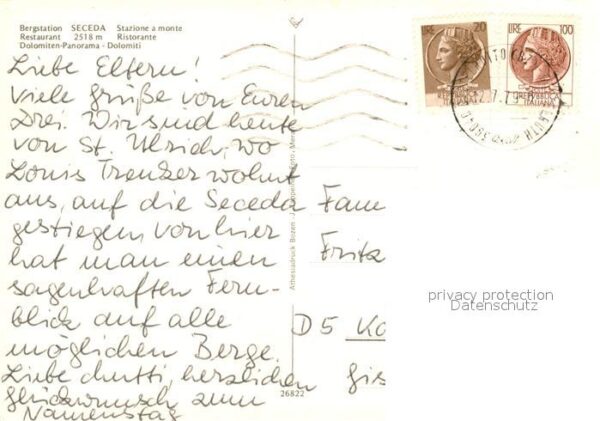 Bergstation SECEDA Stazione a monte
Restaurant 2518 m Ristorante
Dolomiten-Panorama - Dolomiti
LIRE 20
LIRE 100
REPUBBLICA ITALIANA
Liebe Eltern!
Viele Grüße von Euren
Drei. Wir sind heute
von St. Ulrich, wo
Louis Trenker wohnt
aus, auf die Seceda
gestiegen, von hier
hat man einen
sagenhaften Fern-
blick auf alle
möglichen Berge.
Liebe Mutti, herzlichen
glückwunsch zum
Namenstag
Fam
Fritz
D 5 Kö
Gis
Athesiadruck Bozen
26822
privacy protection
Datenschutz